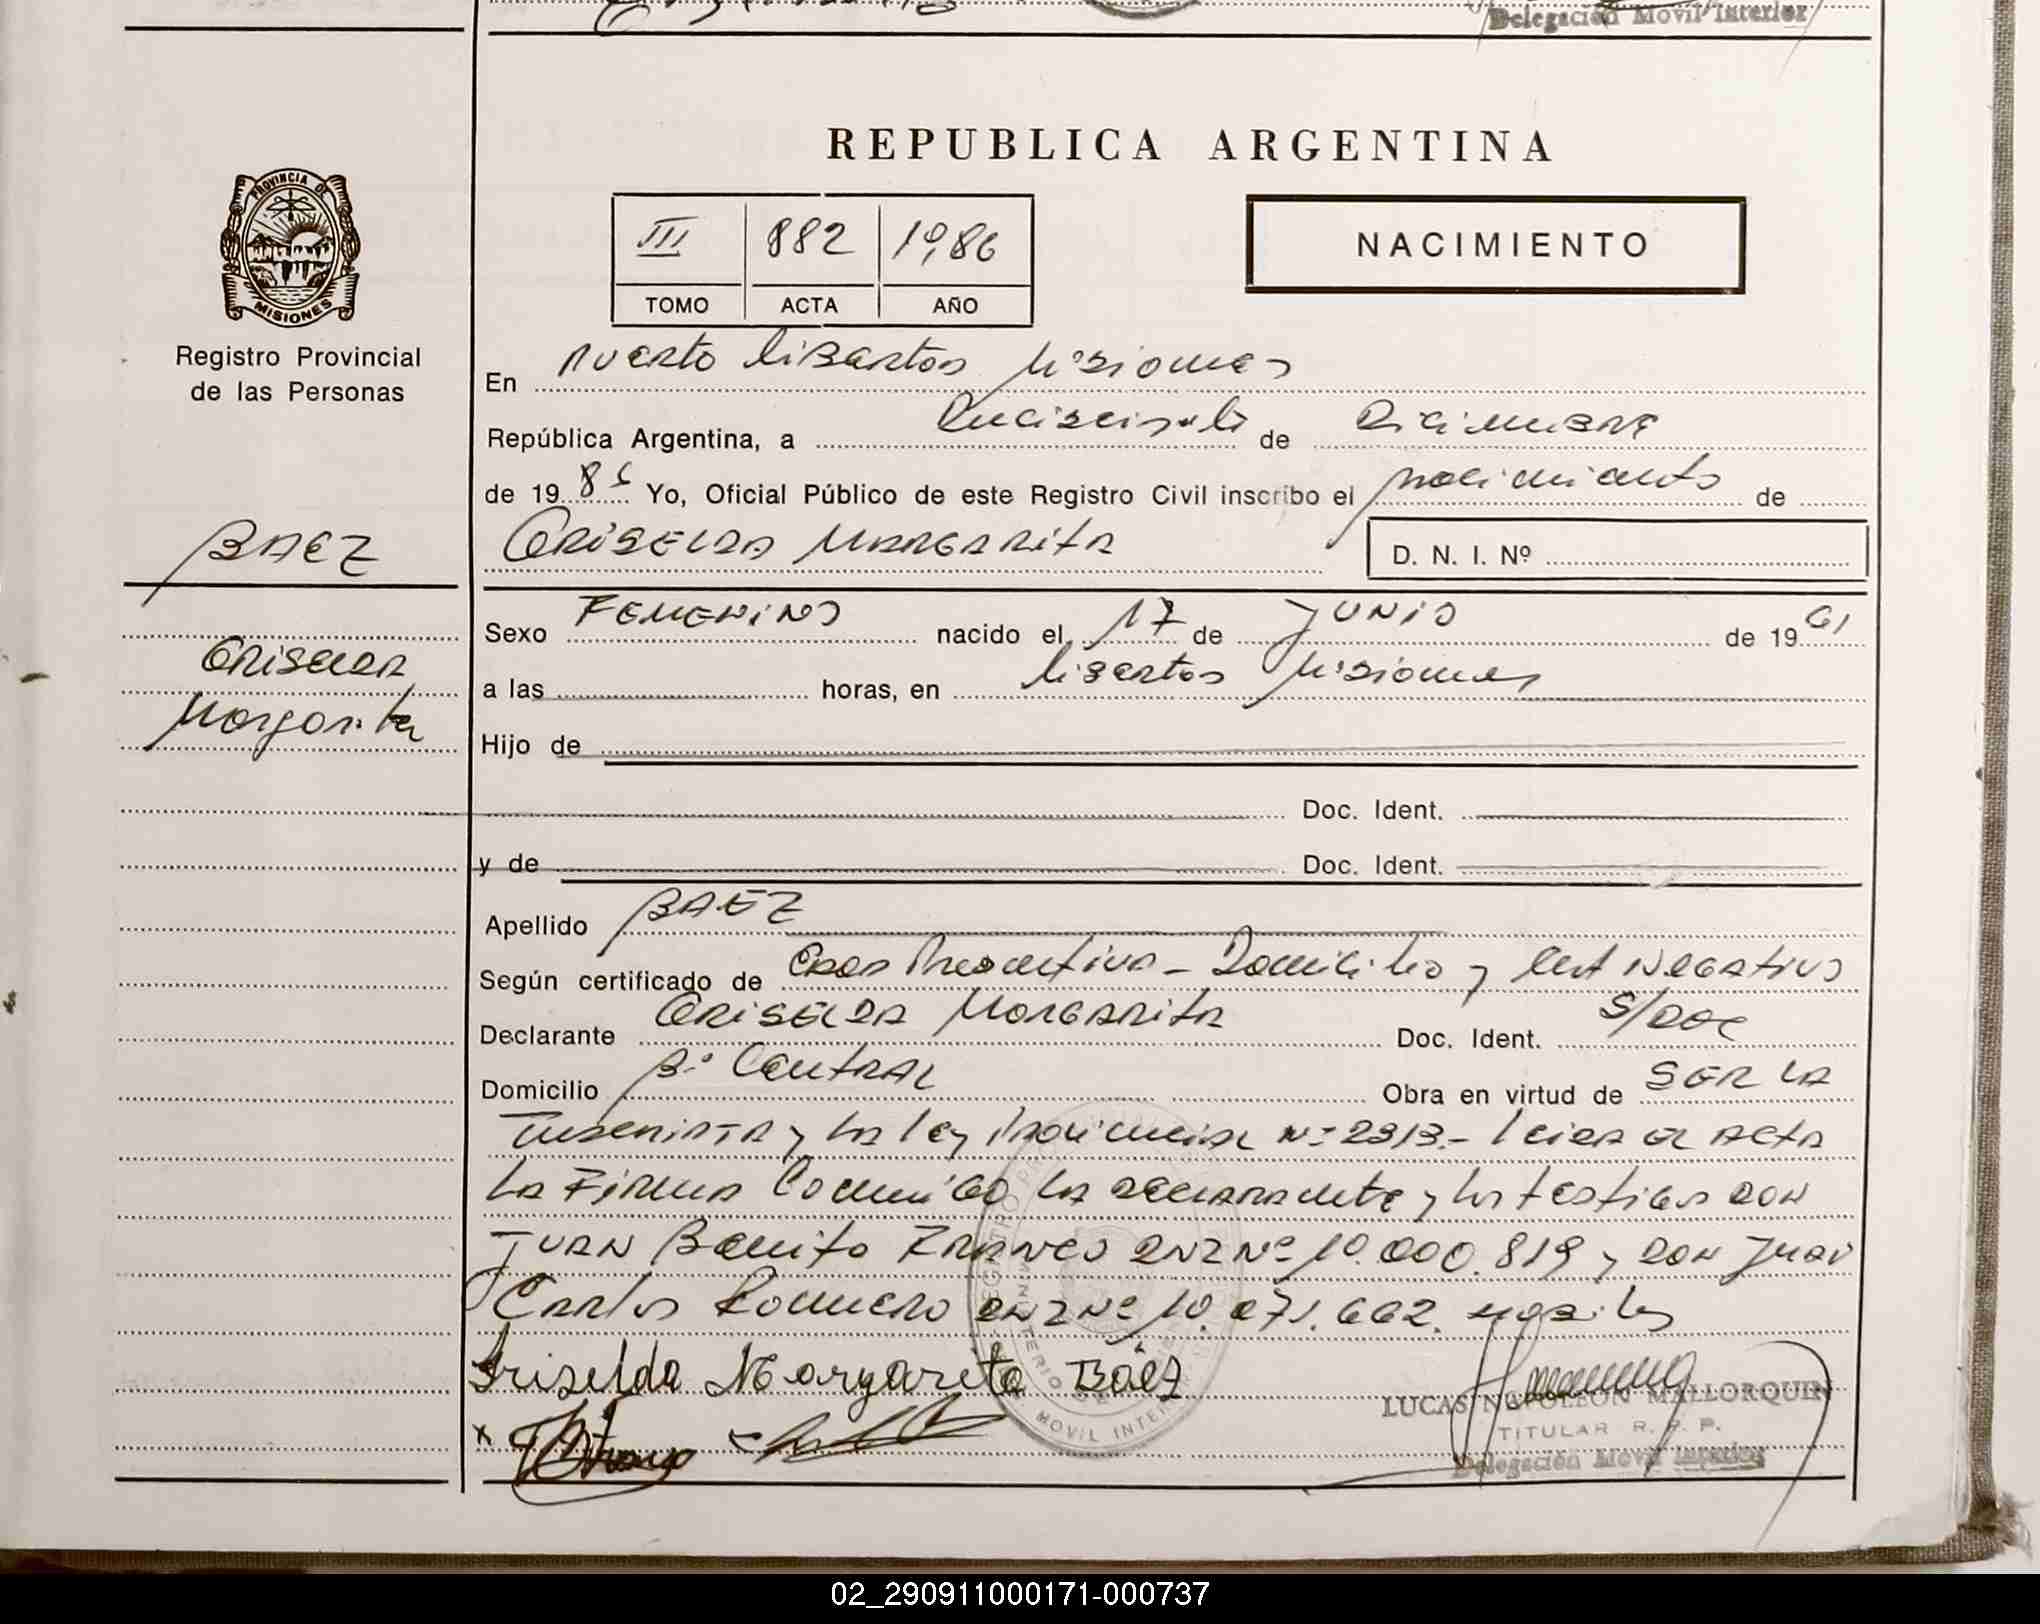 Delegación Móvil Interior
REPUBLICA ARGENTINA
PROVINCIA DE
MISIONES
Registro Provincial
de las Personas
III 882 1986
TOMO ACTA AÑO
NACIMIENTO
En Puerto Libertad Misiones
República Argentina, a Diecisiete de Diciembre
de 1986 Yo, Oficial Público de este Registro Civil inscribo el nacimiento de
BAEZ
GRISELDA MARGARITA
D. N. I. Nº
Sexo FEMENINO nacido el 17 de JUNIO de 1961
Griselda
Margarita
a las horas, en Libertad Misiones
Hijo de
Doc. Ident.
y de Doc. Ident.
Apellido BAEZ
Según certificado de Edad Presuntiva - Domicilio y Cert Negativo
Declarante GRISELDA MARGARITA Doc. Ident. S/DOC
Domicilio Bº Central Obra en virtud de SER LA
Inscripta y la ley Provincial Nº 2313.- Leida el ACTA
la Firma Conmigo la declarante y los testigos DON
JUAN Benito FRANCO DNI Nº 10.000.819 y DON Juan
Carlos Romero DNI Nº 10.071.662.
Griselda Margarita Báez
LUCAS NAPOLEON MALLORQUIN
TITULAR R. P. P.
Delegación Móvil Interior
02_290911000171-000737